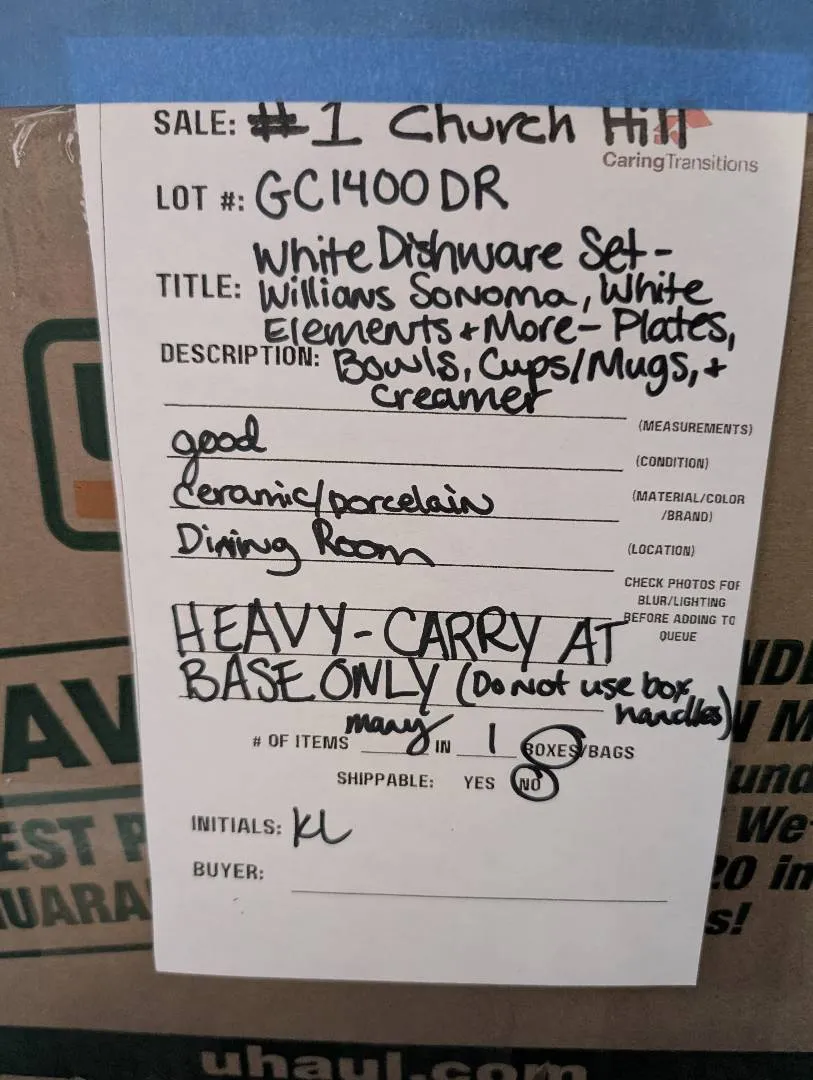 SALE: #1 Church Hill
CaringTransitions
LOT #: GC1400DR
White Dishware Set-
TITLE: Willians Sonoma, White
Elements + More- Plates,
DESCRIPTION: Bowls, Cups/Mugs, +
creamer
(MEASUREMENTS)
good (CONDITION)
Ceramic/porcelain (MATERIAL/COLOR
/BRAND)
Dining Room (LOCATION)
CHECK PHOTOS FOR
BLUR/LIGHTING
BEFORE ADDING TO
QUEUE
HEAVY-CARRY AT
BASE ONLY (Do Not use box
handles)
# OF ITEMS many IN 1 BOXES/BAGS
SHIPPABLE: YES NO
INITIALS: KL
BUYER:
uhaul.com